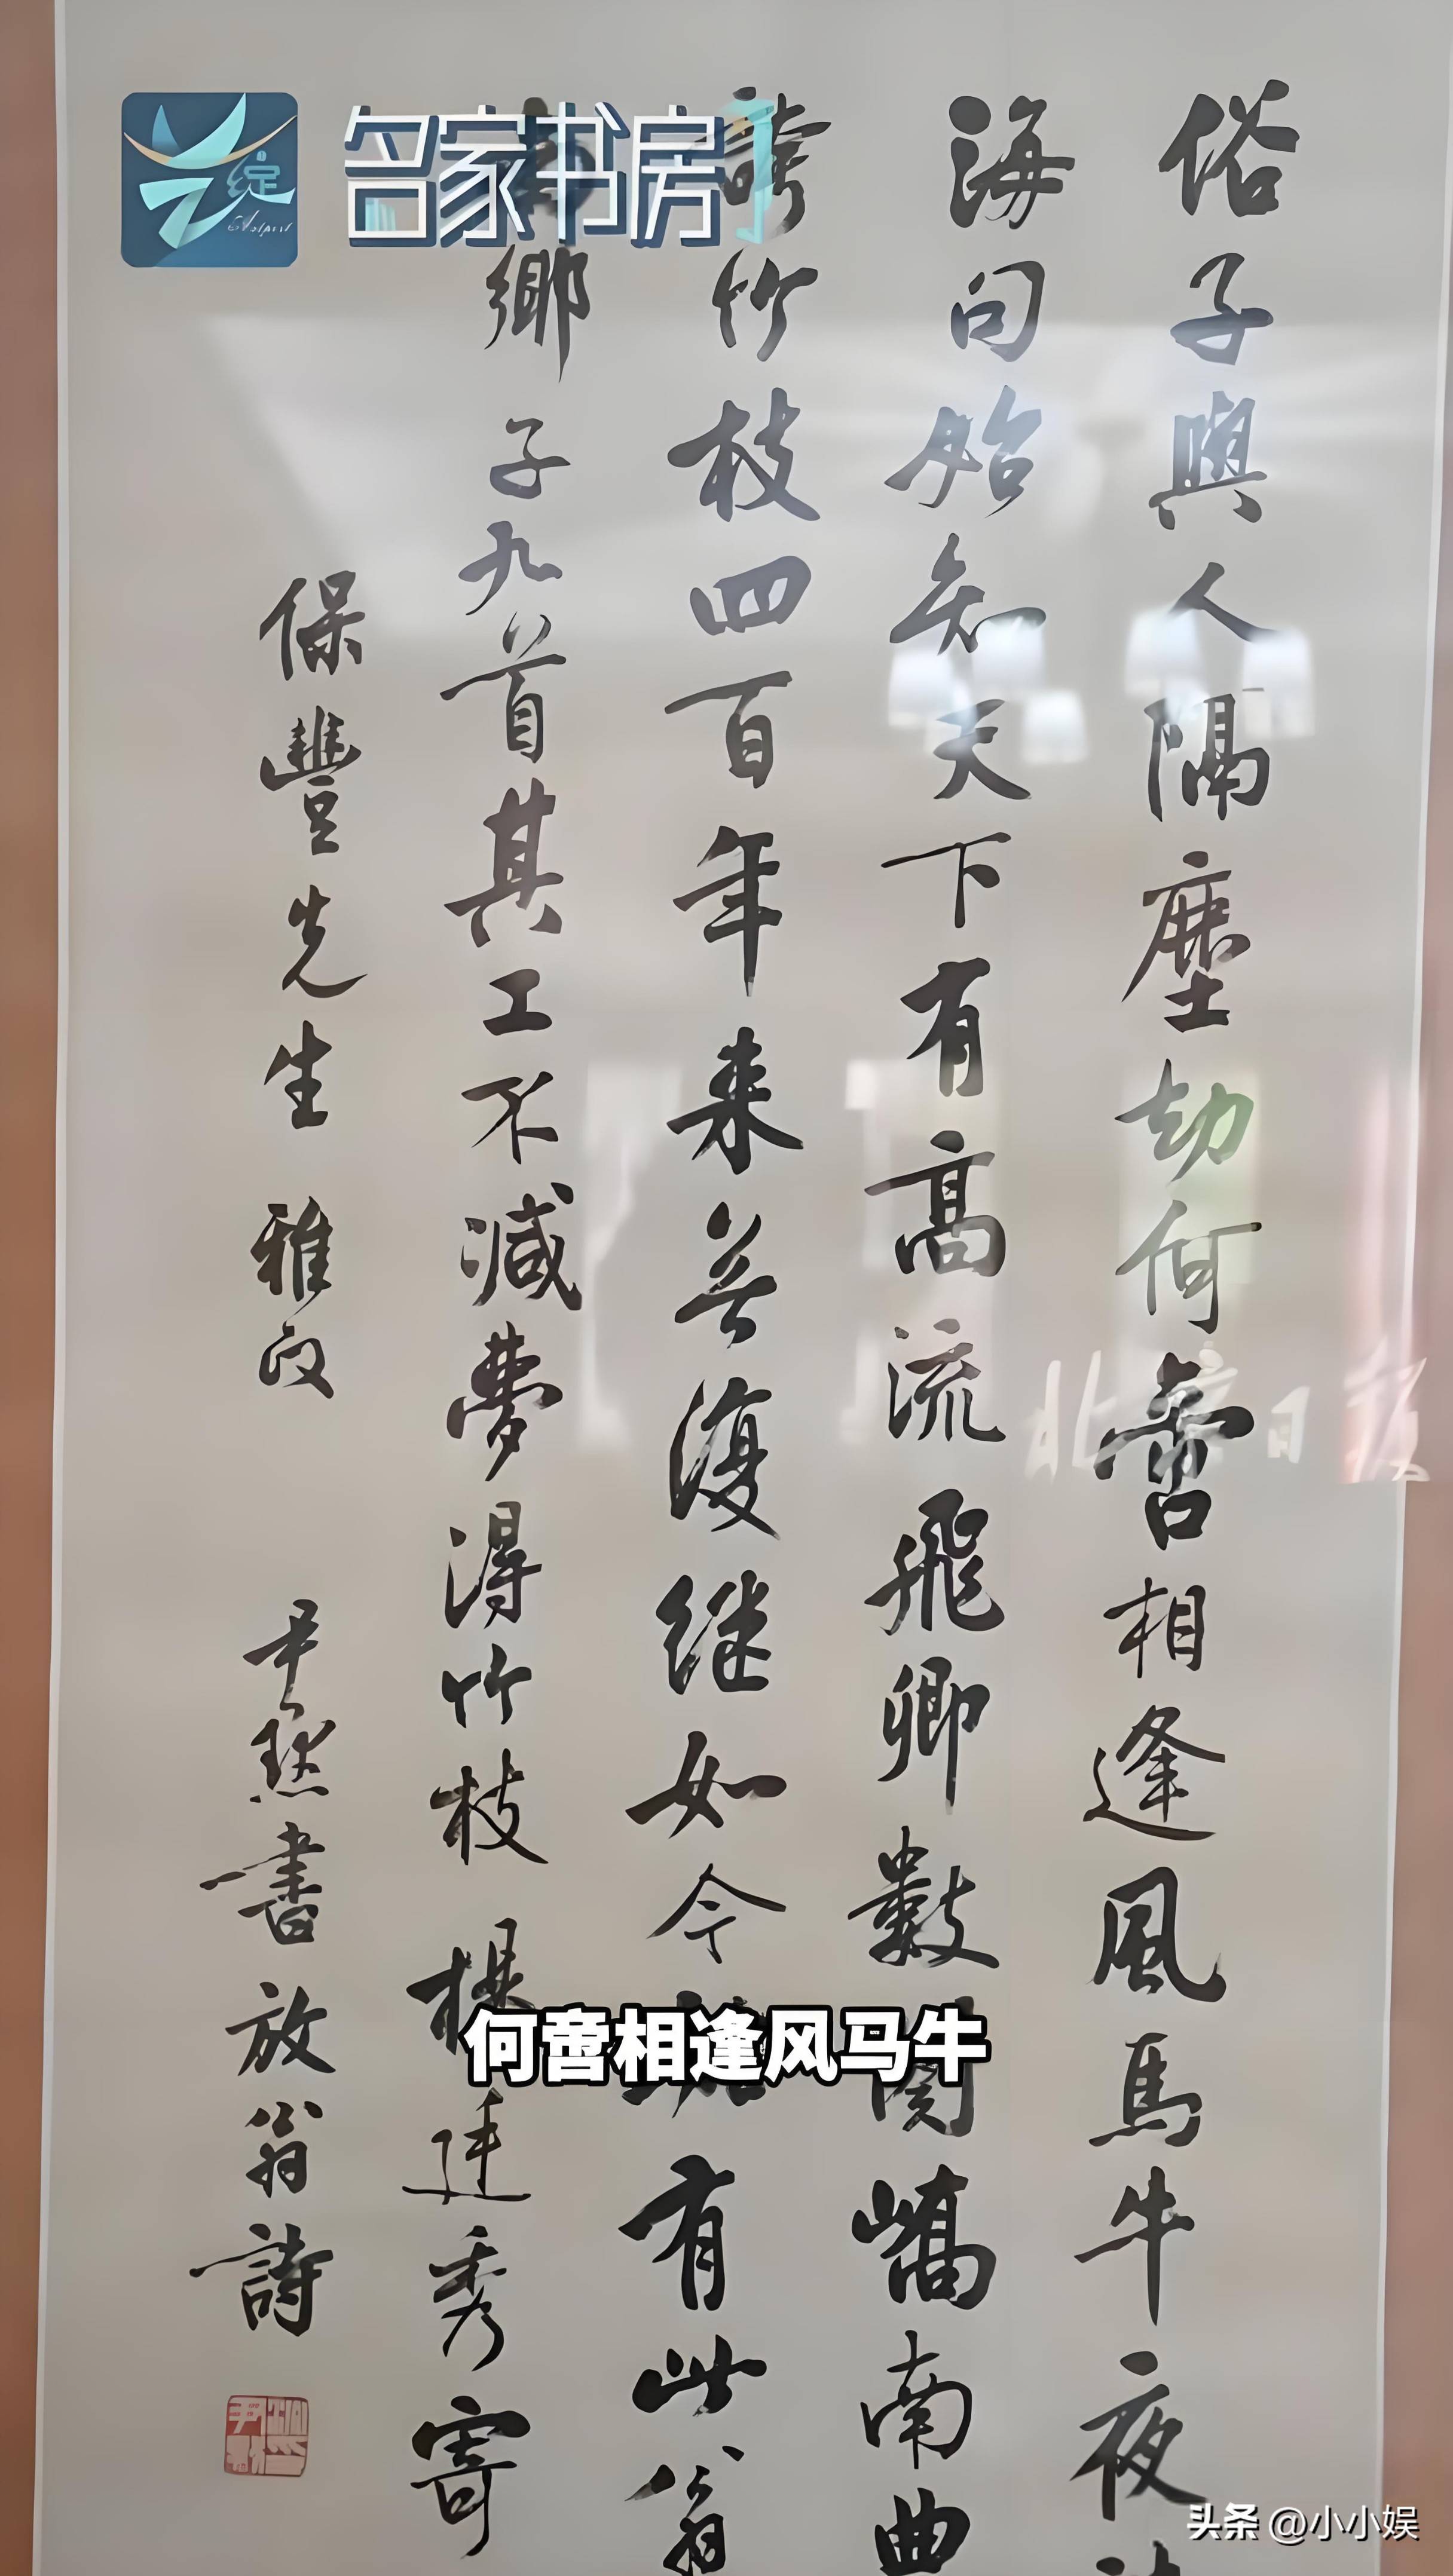 名家书房
俗子與人隔塵劫何啻相逢風馬牛夜
海句始知天下有高流飛卿數闋嶠南曲
誇竹枝四百年來無復继如今
有此翁
鄉子九首其工不減夢得竹枝
楊廷秀寄
保豐先生雅政
尹默書放翁詩
何啻相逢风马牛
北京日报
头条 @小小娱